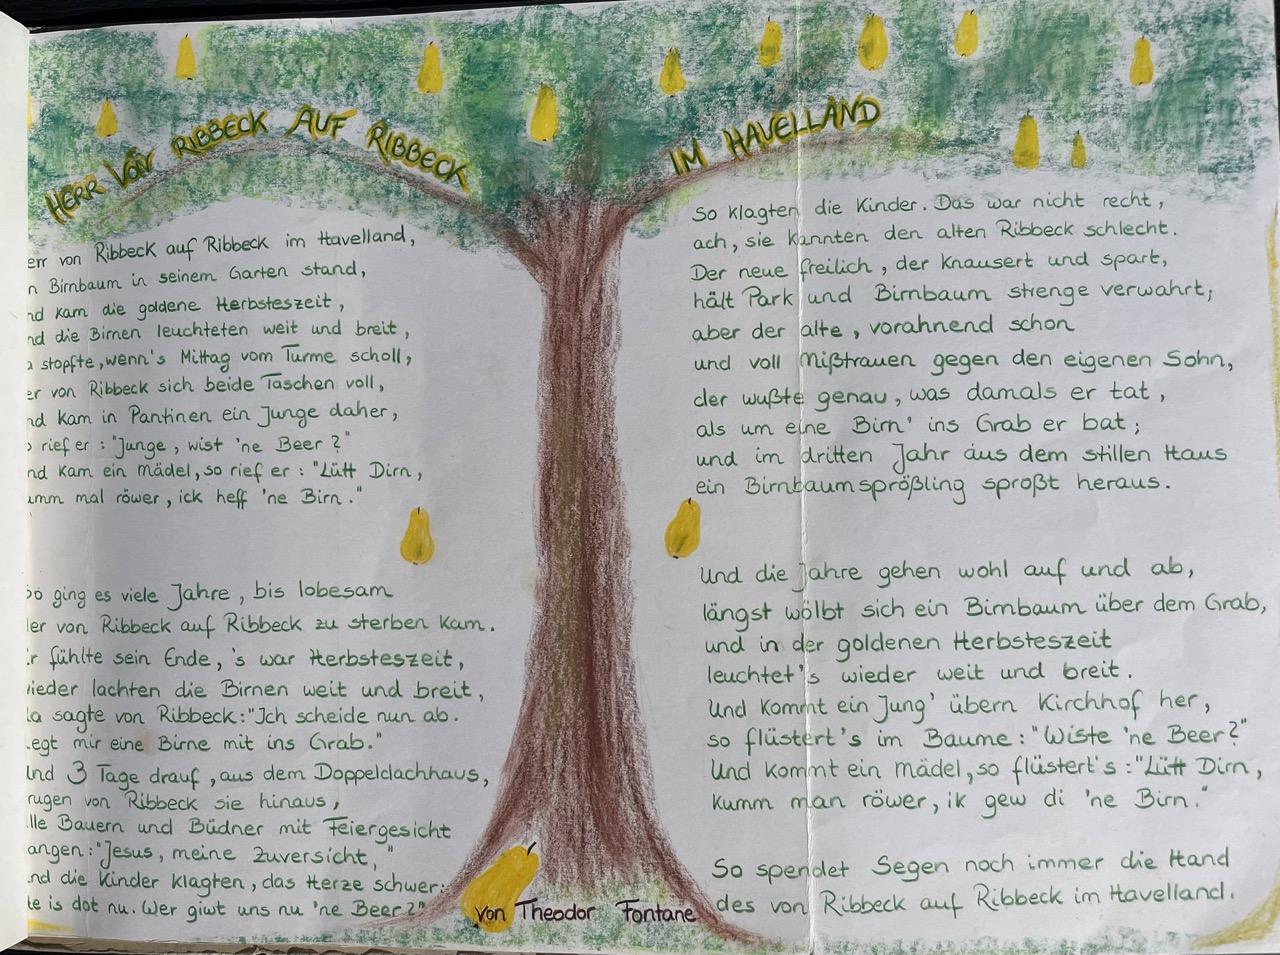 HERR VON RIBBECK AUF RIBBECK IM HAVELLAND
err von Ribbeck auf Ribbeck im Havelland,
n Birnbaum in seinem Garten stand,
nd kam die goldene Herbsteszeit,
nd die Birnen leuchteten weit und breit,
a stopfte, wenn's Mittag vom Turme scholl,
er von Ribbeck sich beide Taschen voll,
nd kam in Pantinen ein Junge daher,
o rief er: "Junge, wist 'ne Beer?"
nd kam ein mädel, so rief er: "Lütt Dirn,
umm mal röwer, ick heff 'ne Birn."
So ging es viele Jahre, bis lobesam
er von Ribbeck auf Ribbeck zu sterben kam.
r fühlte sein Ende, 's war Herbsteszeit,
ieder lachten die Birnen weit und breit,
a sagte von Ribbeck: "Ich scheide nun ab.
egt mir eine Birne mit ins Grab."
Und 3 Tage drauf, aus dem Doppeldachhaus,
rugen von Ribbeck sie hinaus,
lle Bauern und Büdner mit Feiergesicht
angen: "Jesus, meine Zuversicht,"
nd die Kinder klagten, das Herze schwer:
te is dot nu. Wer giwt uns nu 'ne Beer?"
So klagten die Kinder. Das war nicht recht,
ach, sie kannten den alten Ribbeck schlecht.
Der neue freilich, der knausert und spart,
hält Park und Birnbaum strenge verwahrt;
aber der alte, vorahnend schon
und voll Mißtrauen gegen den eigenen Sohn,
der wußte genau, was damals er tat,
als um eine Birn' ins Grab er bat;
und im dritten Jahr aus dem stillen Haus
ein Birnbaumsprößling sproßt heraus.
Und die Jahre gehen wohl auf und ab,
längst wölbt sich ein Birnbaum über dem Grab,
und in der goldenen Herbsteszeit
leuchtet's wieder weit und breit.
Und kommt ein Jung' übern Kirchhof her,
so flüstert's im Baume: "Wiste 'ne Beer?"
Und kommt ein mädel, so flüstert's: "Lütt Dirn,
kumm man röwer, ik gew di 'ne Birn."
So spendet Segen noch immer die Hand
des von Ribbeck auf Ribbeck im Havelland.
von Theodor Fontane